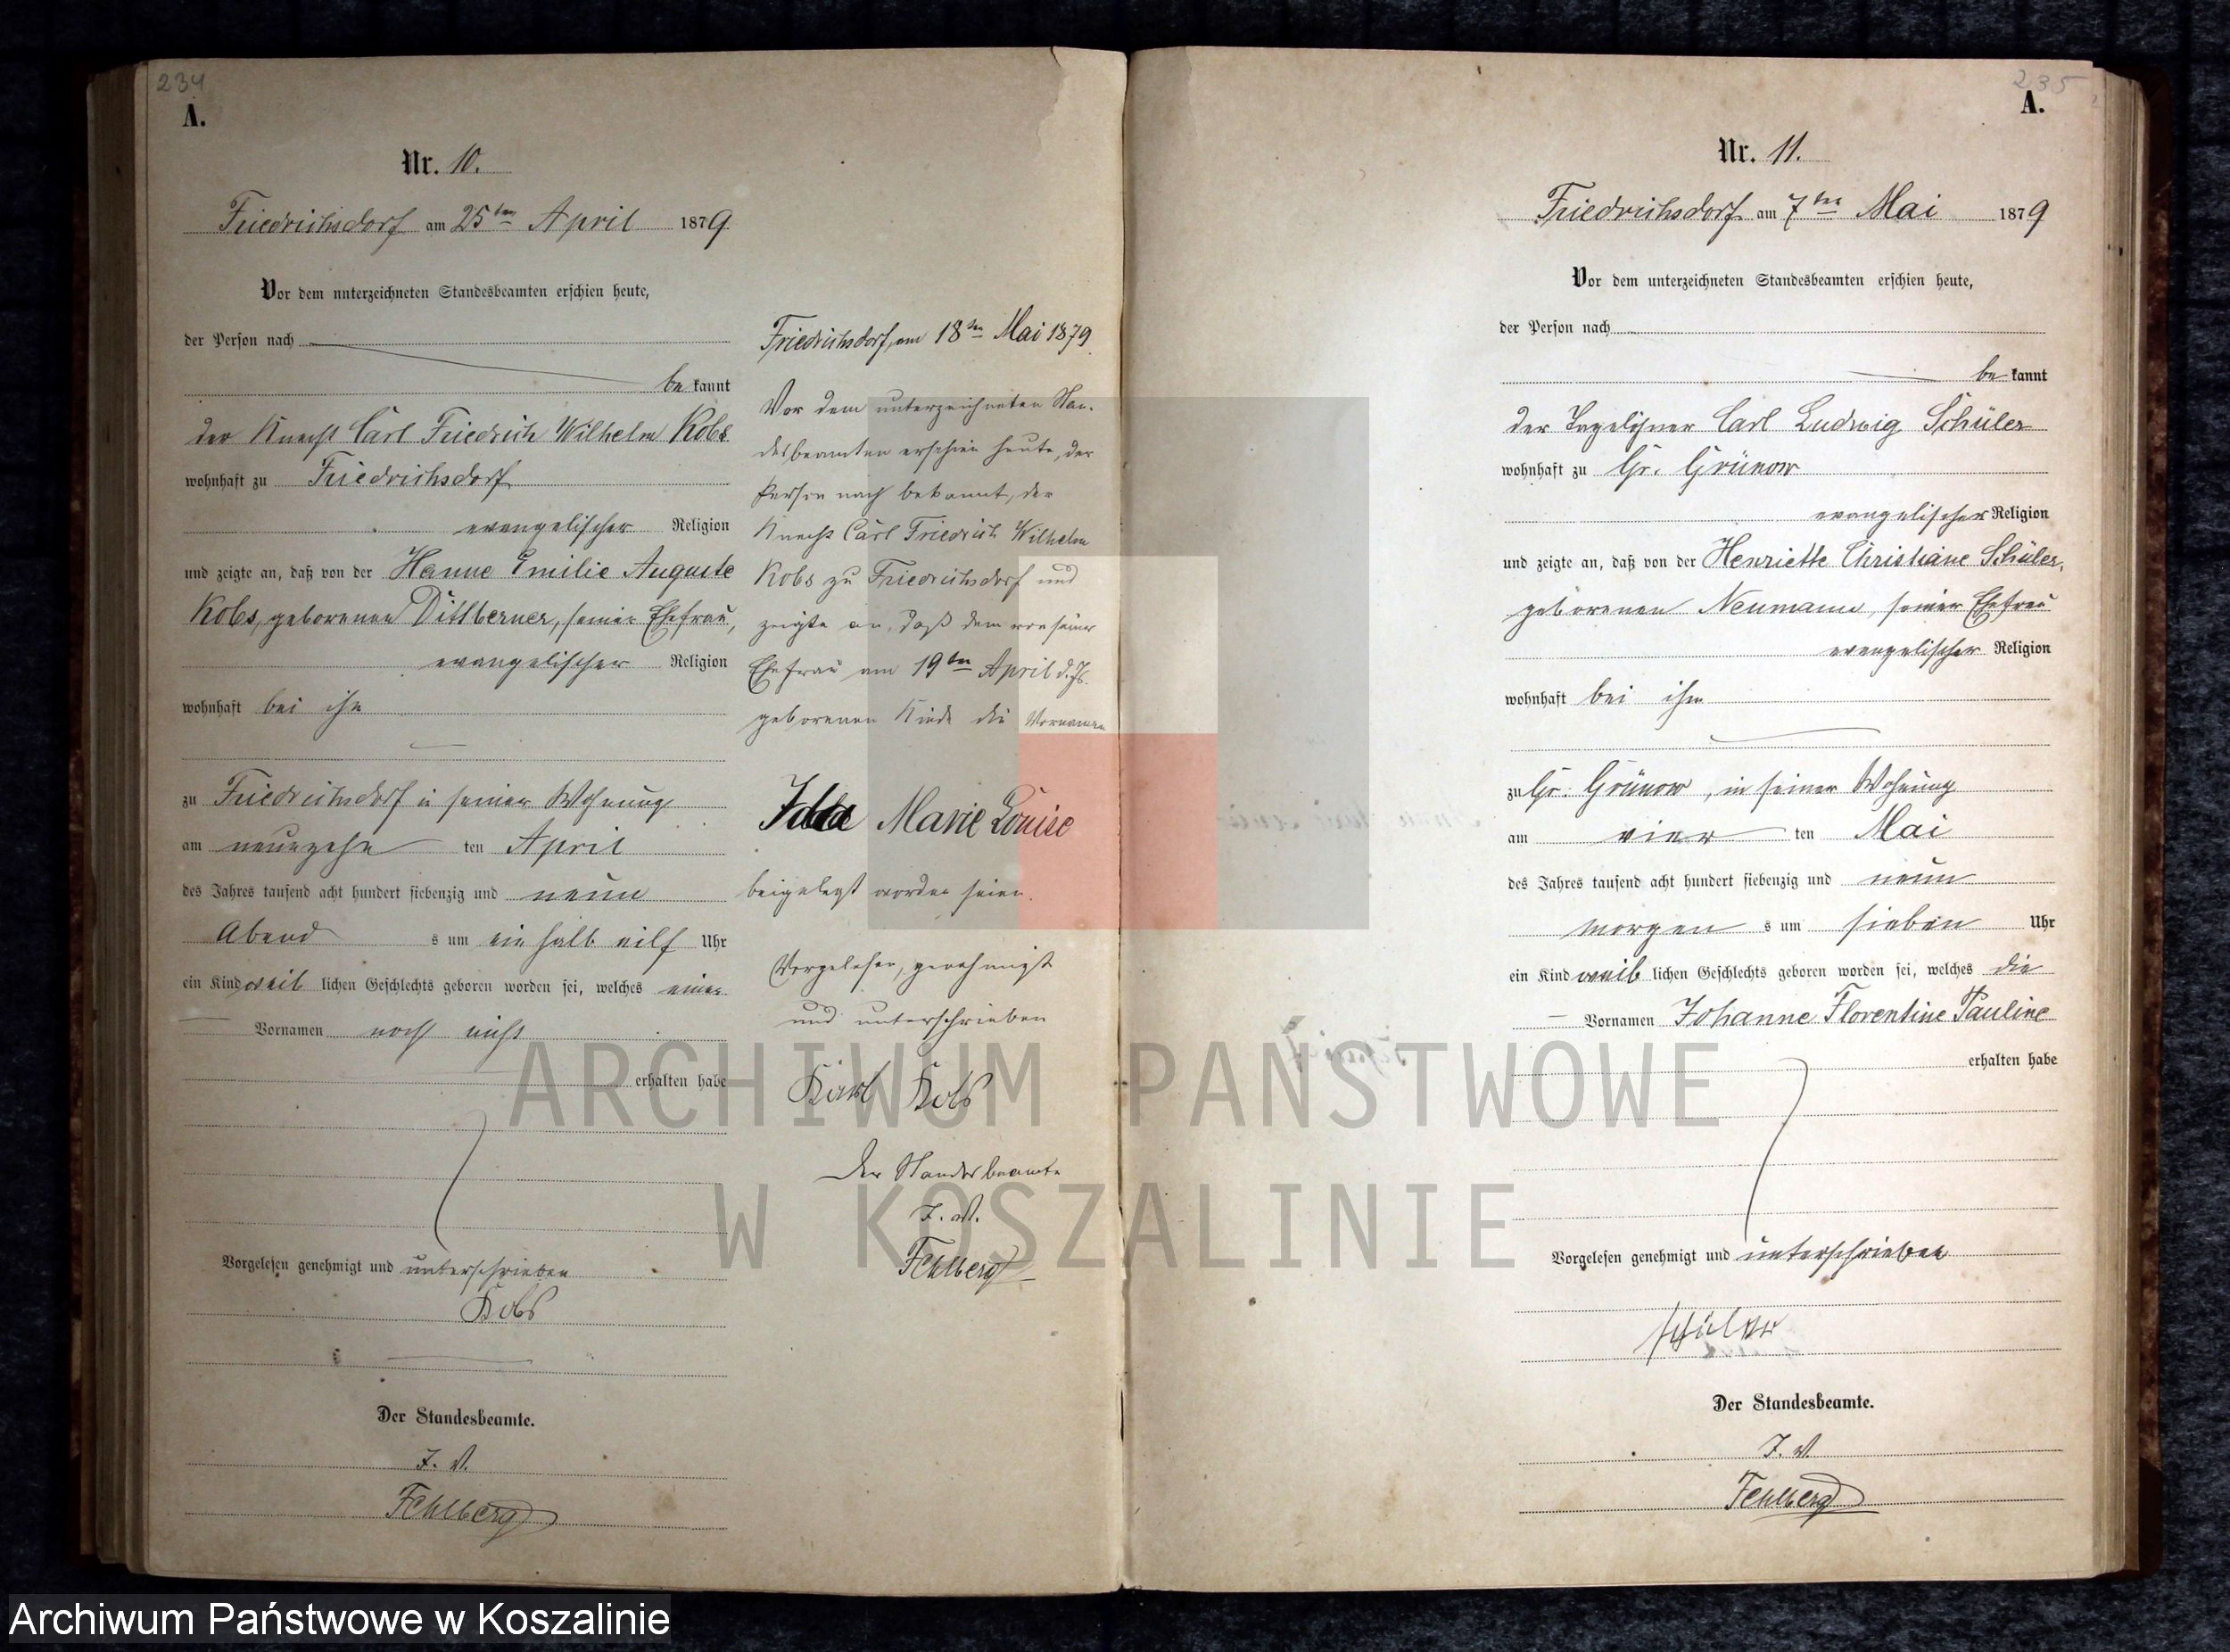 234
A.
Nr. 10.
Friedrichsdorf am 25ten April 1879.
Vor dem unterzeichneten Standesbeamten erschien heute,
der Person nach
be kannt
der Knecht Carl Friedrich Wilhelm Kobs
wohnhaft zu Friedrichsdorf
evangelischer Religion
und zeigte an, daß von der Hanne Emilie Auguste
Kobs, geborenen Dittberner, seiner Ehefrau,
evangelischer Religion
wohnhaft bei ihm
zu Friedrichsdorf in seiner Wohnung
am neunzehn ten April
des Jahres tausend acht hundert siebenzig und neun
Abend s um ein halb eilf Uhr
ein Kind weib lichen Geschlechts geboren worden sei, welches einen
Vornamen noch nicht
erhalten habe
Vorgelesen genehmigt und unterschrieben
Kobs
Der Standesbeamte.
I. V.
Fehlberg
Friedrichsdorf, am 18ten Mai 1879
Vor dem unterzeichneten Stan-
desbeamten erschien heute, der
Person nach bekannt, der
Knecht Carl Friedrich Wilhelm
Kobs zu Friedrichsdorf und
zeigte an, daß dem von seiner
Ehefrau am 19ten April d. Js.
geborenen Kinde die Vornamen
Ida Marie Louise
beigelegt worden seien.
Vorgelesen, genehmigt
und unterschrieben
Karl Kobs
Der Standesbeamte
I. V.
Fehlberg
235
A.
Nr. 11.
Friedrichsdorf am 7ten Mai 1879
Vor dem unterzeichneten Standesbeamten erschien heute,
der Person nach
be kannt
der Tagelöhner Carl Ludwig Schüler
wohnhaft zu Gr. Grünow
evangelischer Religion
und zeigte an, daß von der Henriette Christiane Schüler,
geborenen Neumann, seiner Ehefrau
evangelischer Religion
wohnhaft bei ihm
zu Gr. Grünow, in seiner Wohnung
am vier ten Mai
des Jahres tausend acht hundert siebenzig und neun
morgen s um sieben Uhr
ein Kind weib lichen Geschlechts geboren worden sei, welches die
Vornamen Johanne Florentine Pauline
erhalten habe
Vorgelesen genehmigt und unterschrieben
Schüler
Der Standesbeamte.
I. V.
Fehlberg
ARCHIWUM PAŃSTWOWE
W KOSZALINIE
Archiwum Państwowe w Koszalinie